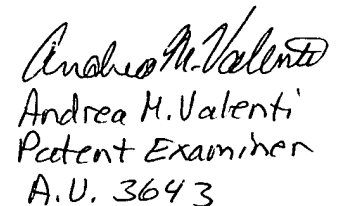 Andrea M. Valenti
Andrea M. Valenti
Patent Examiner
A.U. 3643